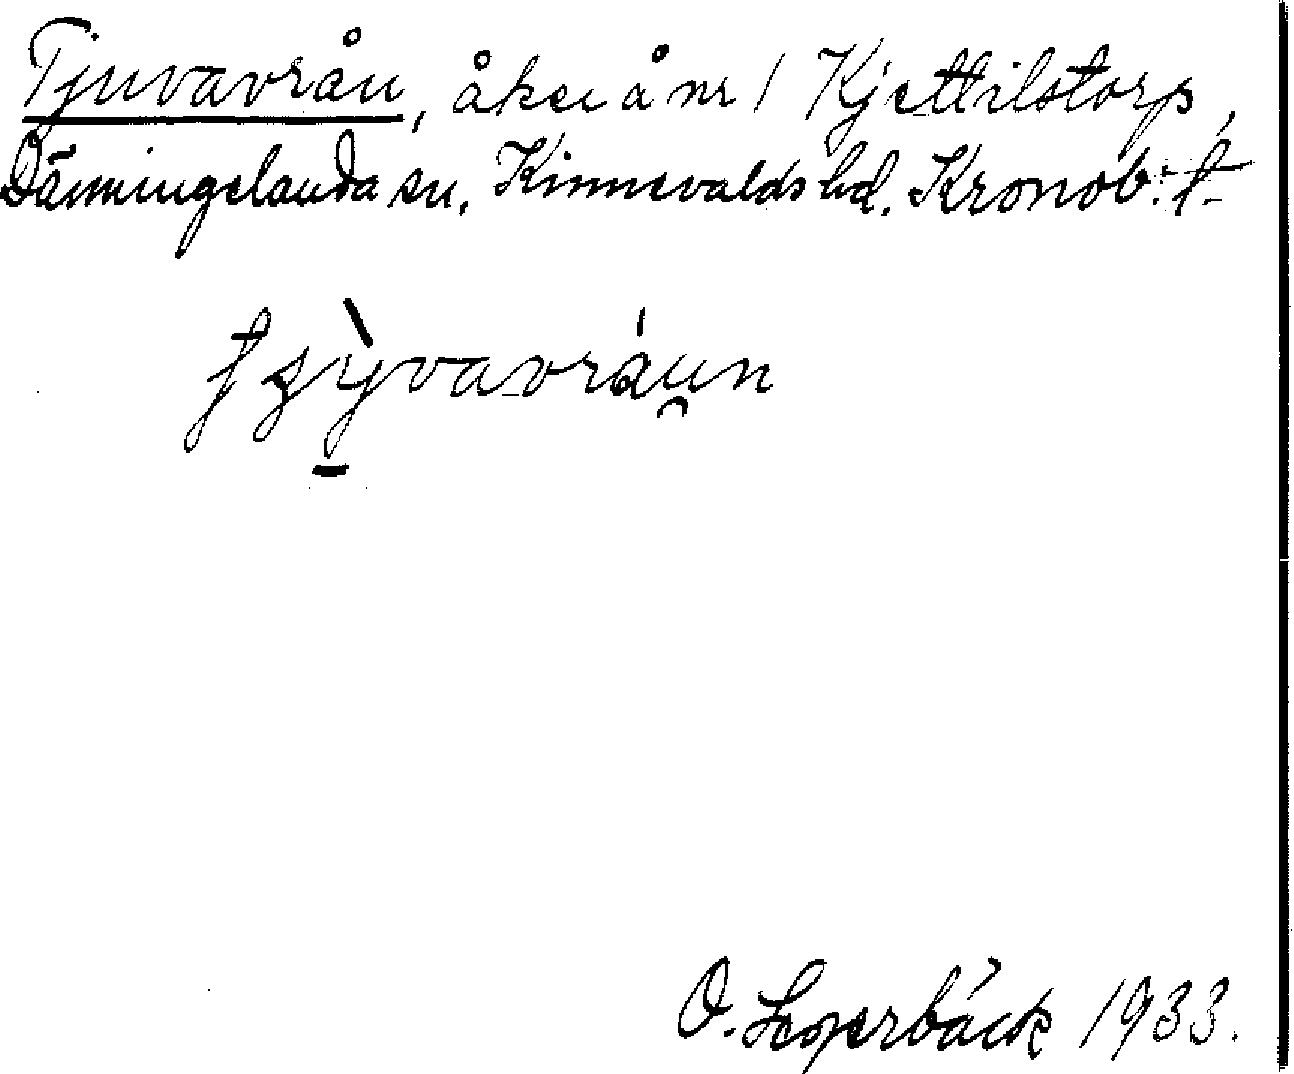 Tjuvavrån, åker å nr 1 Kjettilstorp,
Dänningelanda sn, Kinnevalds hd. Kronob: l.
O. Lagerbäck 1933.